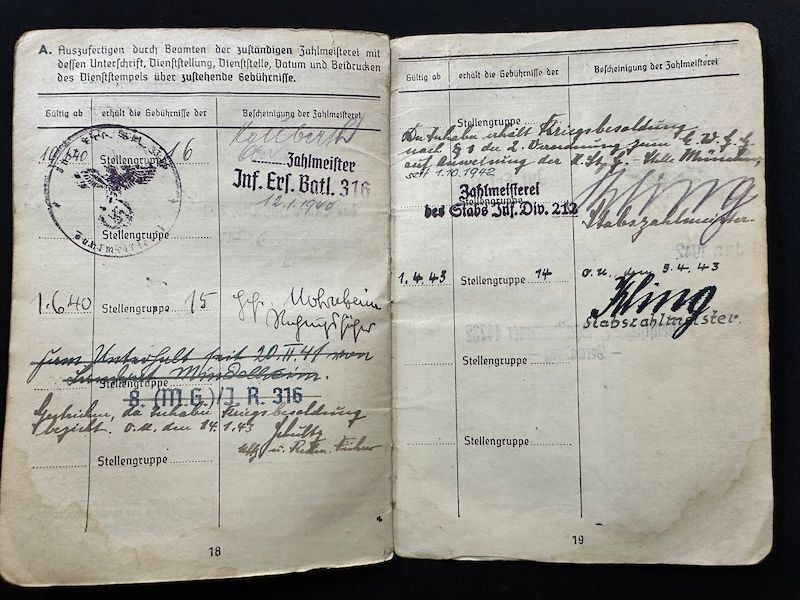 A. Auszufertigen durch Beamten der zuständigen Zahlmeisterei mit
dessen Unterschrift, Dienststellung, Dienststelle, Datum und Beidrucken
des Dienststempels über zustehende Gebührnisse.
Gültig ab erhält die Gebührnisse der Bescheinigung der Zahlmeisterei
40 Stellengruppe 16
Zahlmeister
Inf. Ers. Batl. 316
12.1.1940
Stellengruppe
1.6.40 Stellengruppe 15
Unterhalt seit 20.II.41 von
Mindelheim.
Stellengruppe
8. (M.G.)/J. R. 316
Gestrichen, da Inhaber Kriegsbesoldung
bezieht. O.U. den 14.1.43
Uffz. u. Rechn. Führer
Stellengruppe
18
Gültig ab erhält die Gebührnisse der Bescheinigung der Zahlmeisterei
Stellengruppe
Der Inhaber erhält Kriegsbesoldung
nach § 1 der 2. Verordnung zum E.W.G.G.
auf Anweisung der Stelle München
seit 1.10.1942
Zahlmeisterei
Stellengruppe
des Stabs Inf. Div. 212
Kling
Stabszahlmeister.
1.4.43 Stellengruppe 14 O.U., den 9.4.43
Kling
Stabszahlmeister.
Stellengruppe
Stellengruppe
19